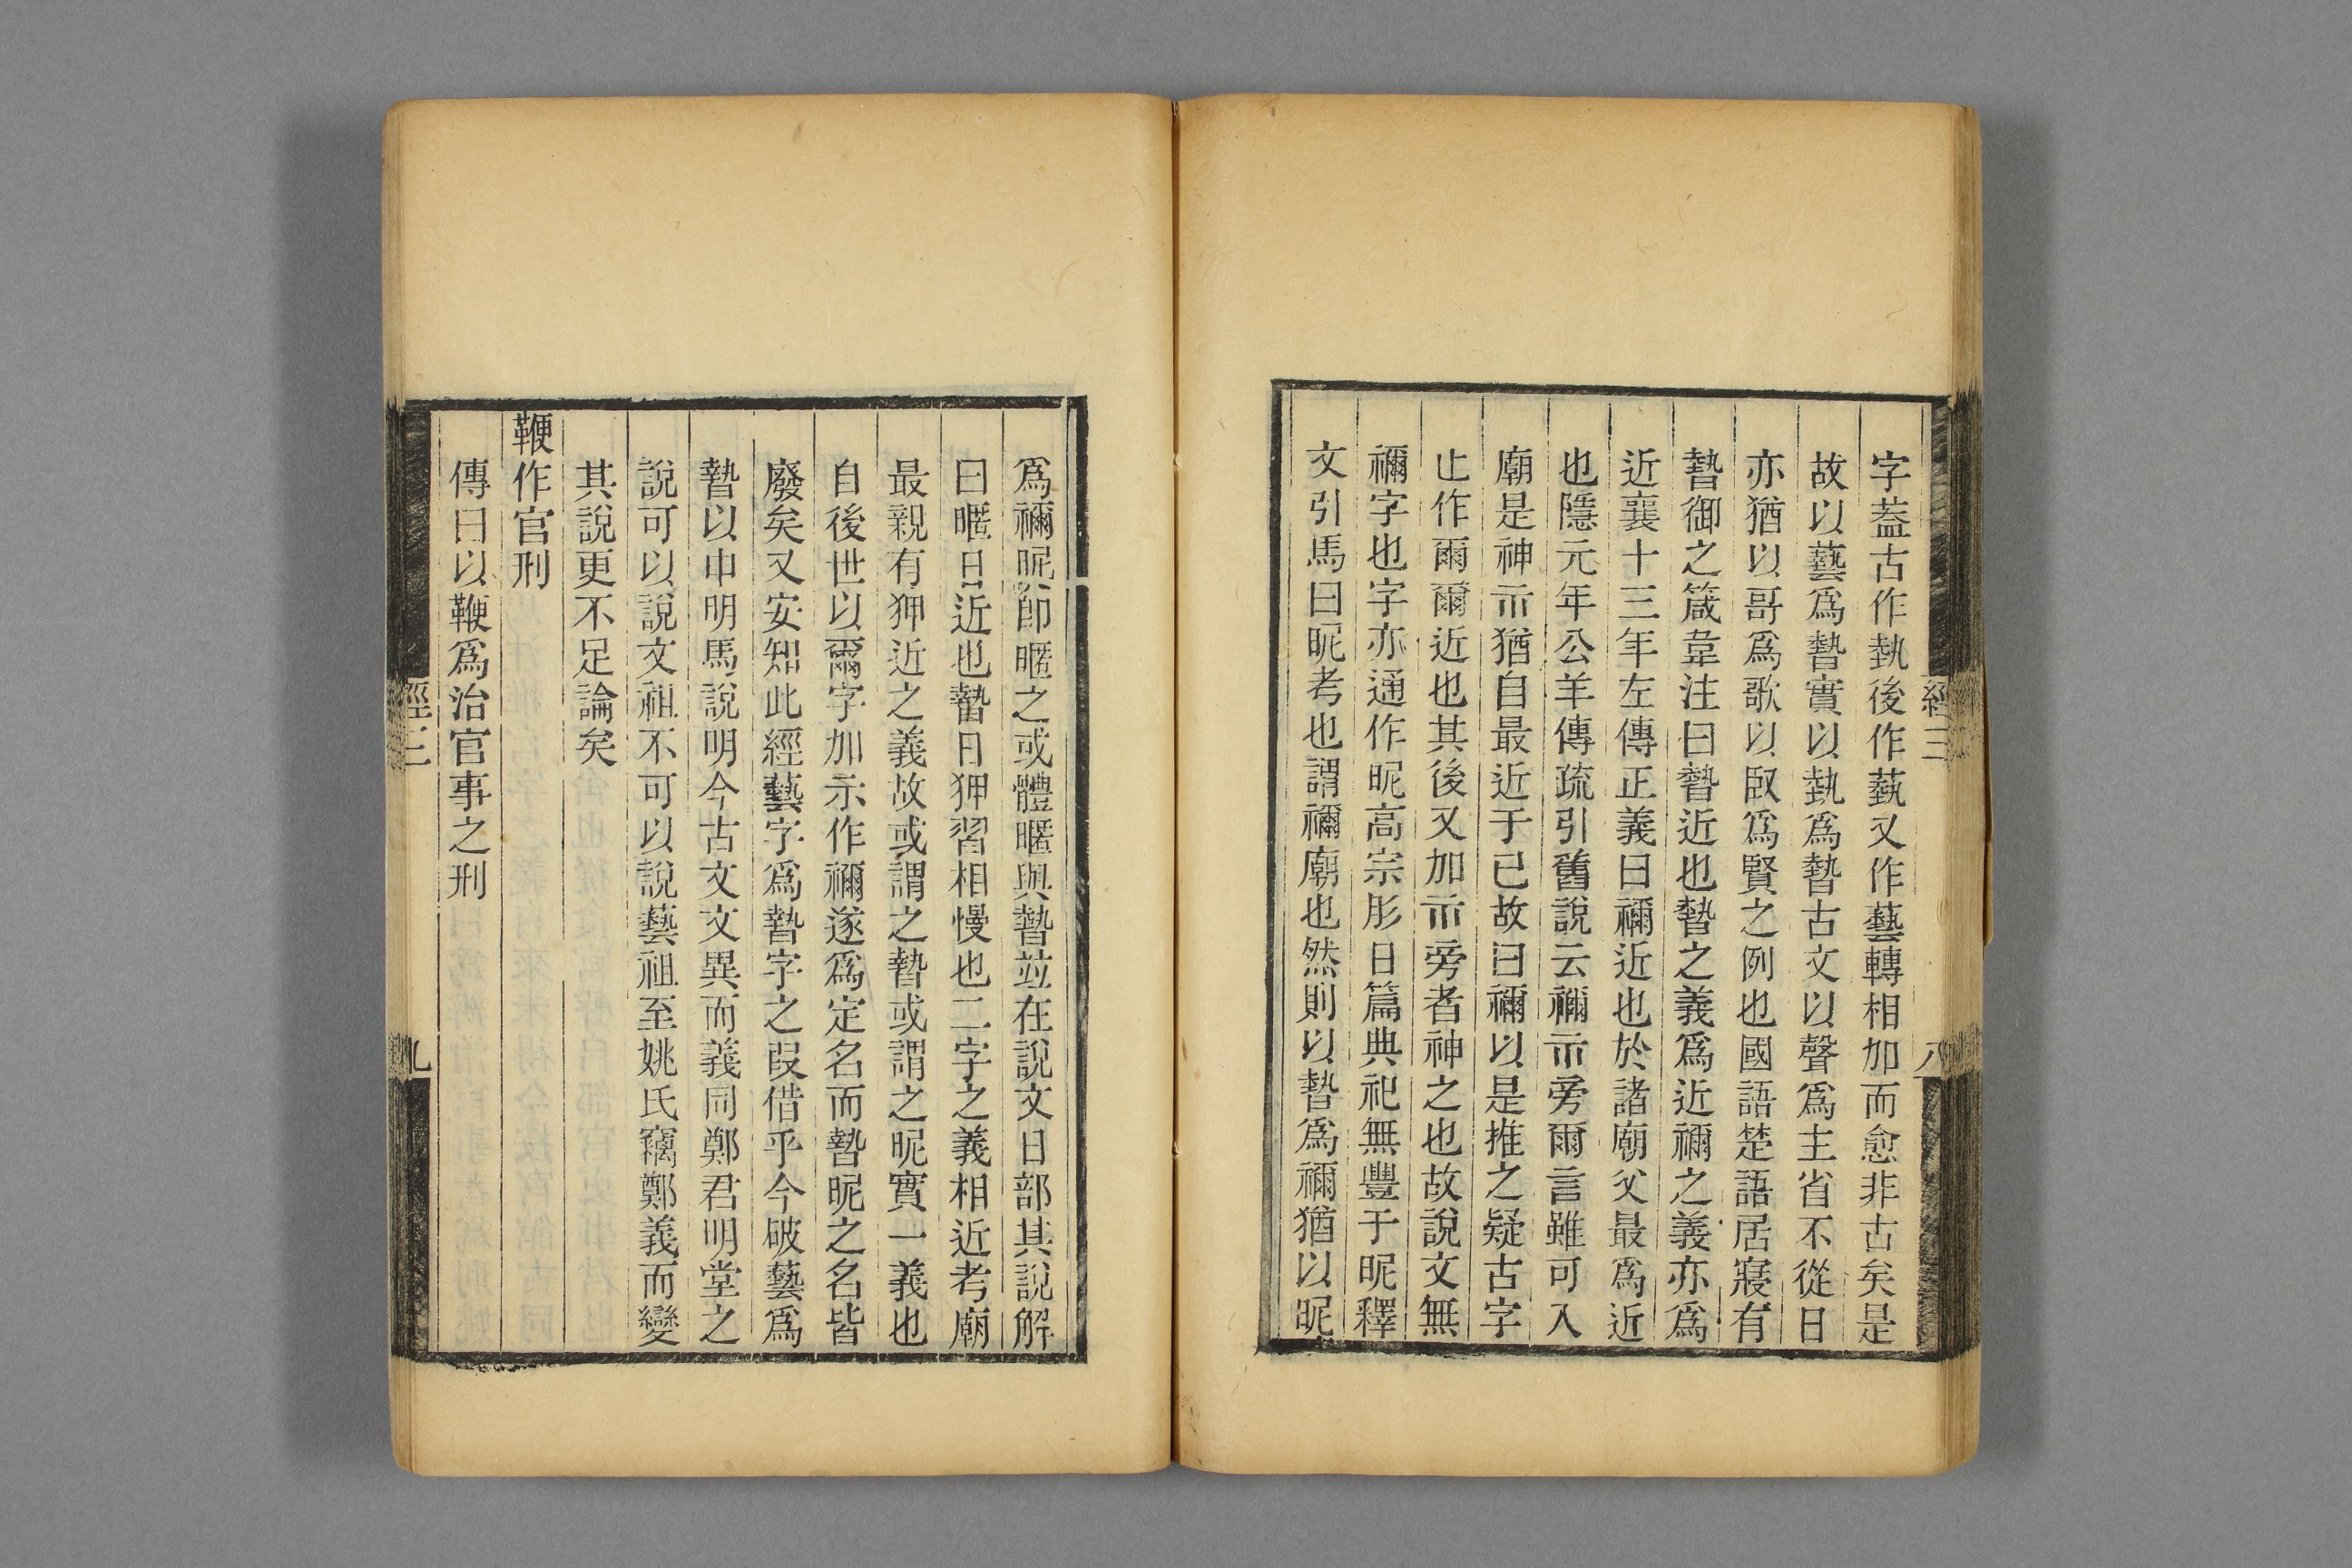 字葢古作埶後作蓺又作藝轉相加而愈非古矣是
故以藝爲暬實以埶爲暬古文以聲爲主省不從日
亦猶以哥爲歌以臤爲賢之例也國語楚語居寢有
暬御之箴韋注曰暬近也暬之義爲近禰之義亦爲
近襄十三年左傳正義曰禰近也於諸廟父最爲近
也隱元年公羊傳疏引舊說云禰示旁爾言雖可入
廟是神示猶自最近于已故曰禰以是推之疑古字
止作爾爾近也其後又加示旁者神之也故說文無
禰字也字亦通作昵高宗肜日篇典祀無豐于昵釋
文引馬曰昵考也謂禰廟也然則以暬爲禰猶以昵
經三
八
爲禰昵卽暱之或體暱與暬竝在說文日部其說解
曰暱日近也暬日狎習相慢也二字之義相近考廟
最親有狎近之義故或謂之暬或謂之昵實一義也
自後世以爾字加示作禰遂爲定名而暬昵之名皆
廢矣又安知此經藝字爲暬字之叚借乎今破藝爲
暬以申明馬說明今古文文異而義同鄭君明堂之
說可以說文祖不可以說藝祖至姚氏竊鄭義而變
其說更不足論矣
鞭作官刑
傳曰以鞭爲治官事之刑
經三
九